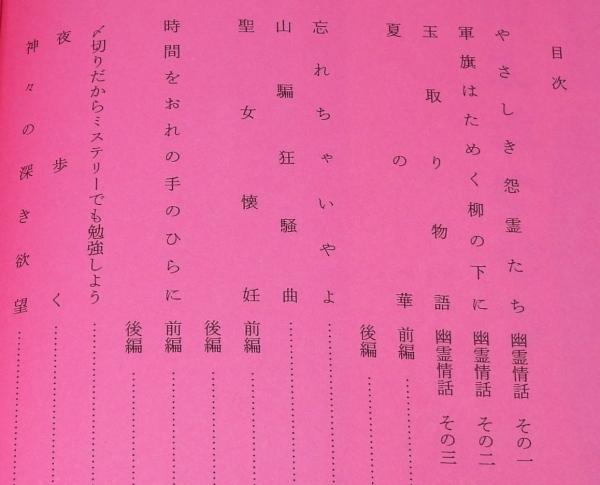 目次
やさしき怨霊たち 幽霊情話 その一
軍旗はためく柳の下に 幽霊情話 その二
玉取り物語 幽霊情話 その三
夏の華 前編…………
後編…………
忘れちゃいやよ…………
山騙狂騒曲…………
聖女懐妊 前編…………
後編…………
時間をおれの手のひらに 前編…………
後編…………
〆切りだからミステリーでも勉強しよう…………
夜歩く…………
神々の深き欲望…………